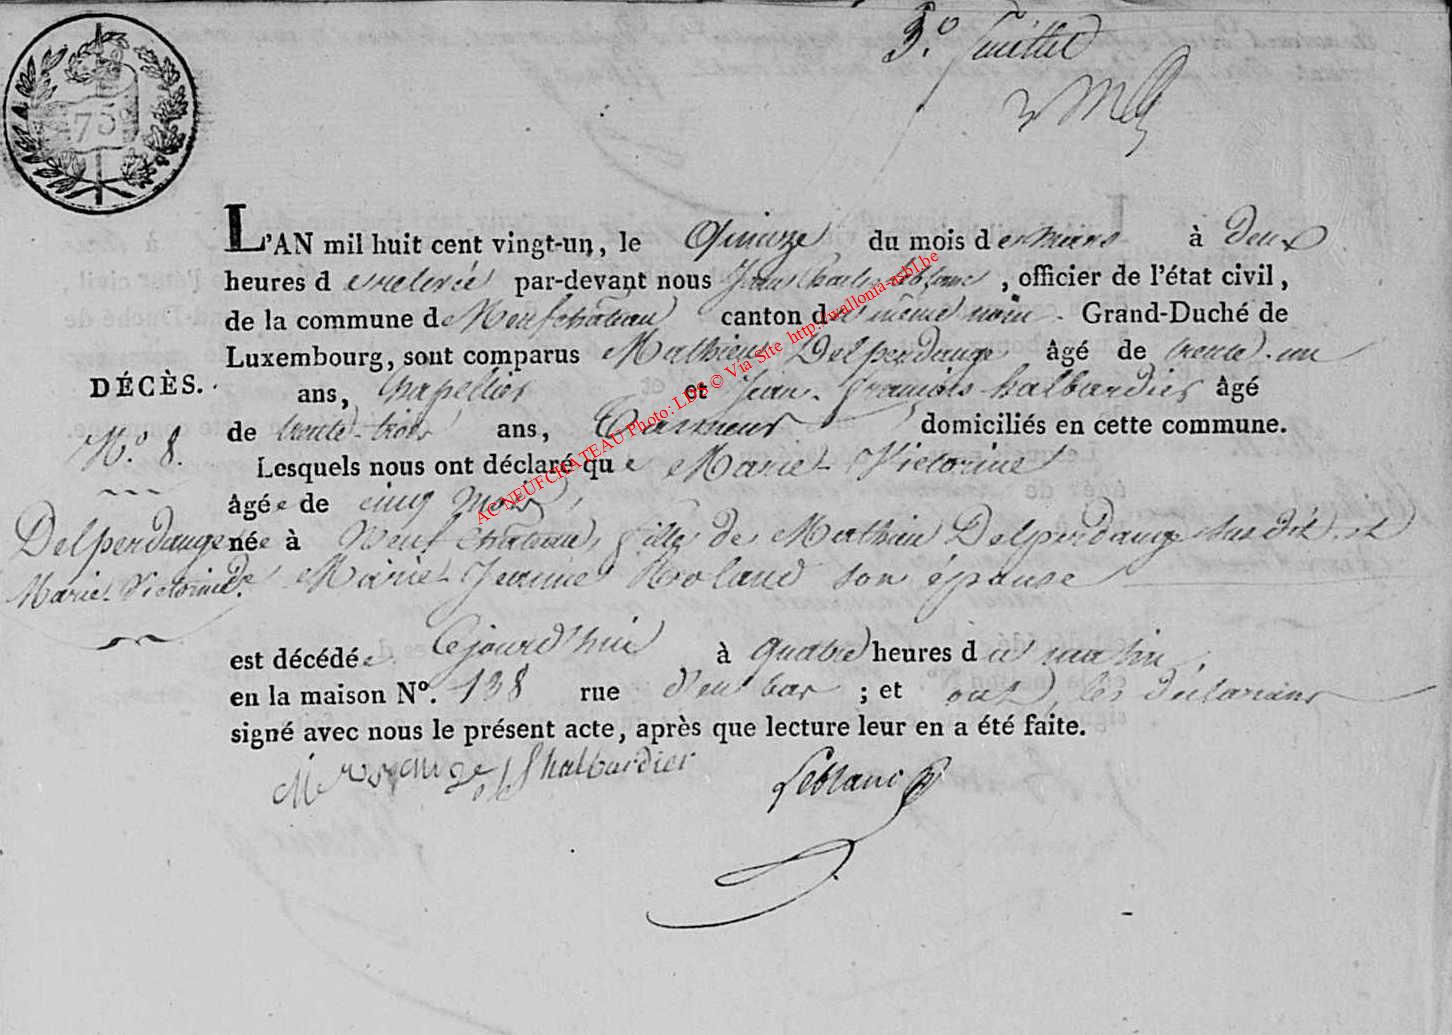 3.º feuillet
75
L'AN mil huit cent vingt-un, le Quinze du mois de mars à deux
heures de relevée par-devant nous Jean Charles Leblanc, officier de l'état civil,
de la commune de Neufchateau canton du même nom. Grand-Duché de
Luxembourg, sont comparus Mathieu Delperdange âgé de trente-un
DÉCÈS.
ans, Chapellier et Jean-François halbardier âgé
de trente-trois ans, Tanneur domiciliés en cette commune.
N.º 8.
Lesquels nous ont déclaré que Marie-Victorine
âgée de cinq mois,
Delperdange
née à Neufchateau, fille de Mathieu Delperdange susdit et
Marie-Victorine
de Marie-Jeanne Roland son épouse
est décédée cejourd'hui à quatre heures du matin,
en la maison Nº. 138 rue d'en bas ; et ont, les déclarans
signé avec nous le présent acte, après que lecture leur en a été faite.
halbardier Leblanc
AC NEUFCHATEAU Photo: LDS © Via Site http://wallonia-asbl.be